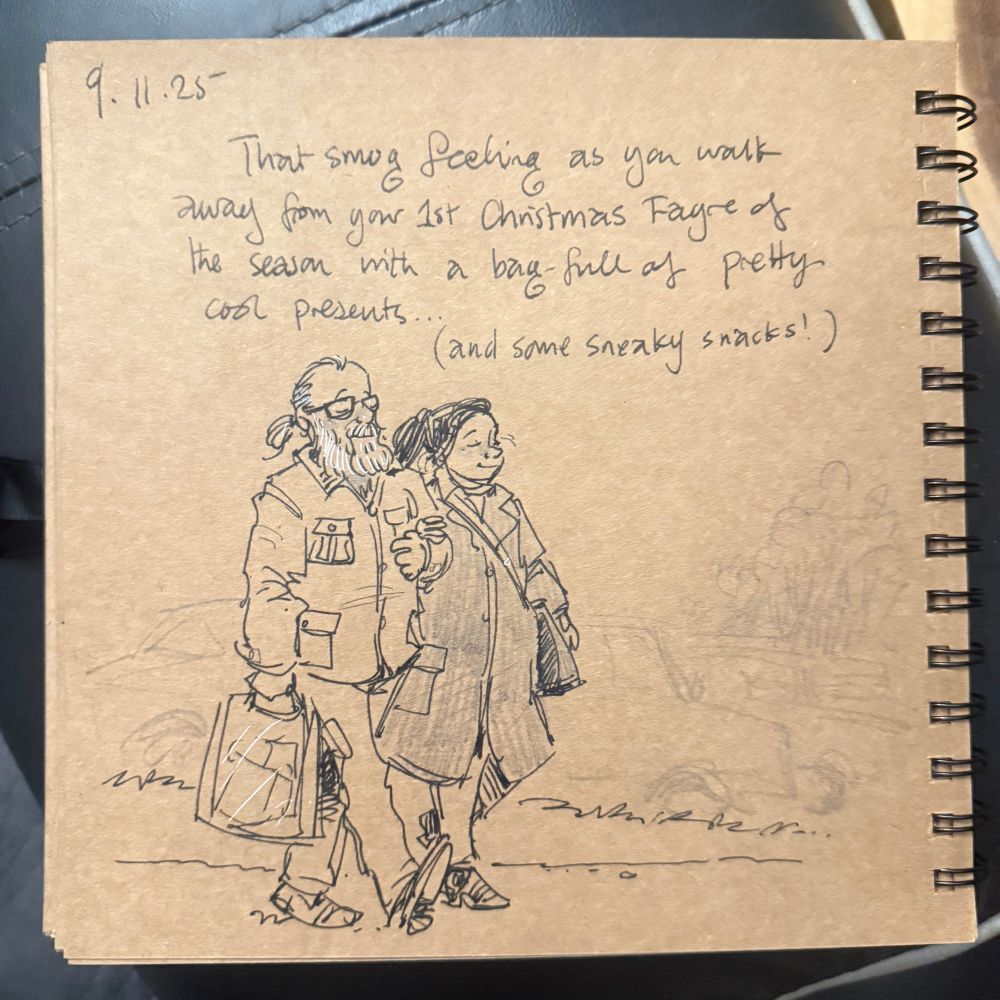 9.11.25
That smug feeling as you walk
away from your 1st Christmas Fayre of
the season with a bag-full of pretty
cool presents...
(and some sneaky snacks!)